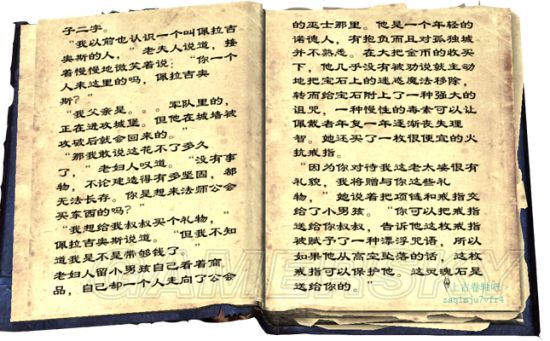 子二字。
“我以前也认识一个叫佩拉吉
奥斯的人，”老夫人说道，接
着慢慢地微笑着说：“你一个
人来这里的吗，佩拉吉奥
斯？”
“我父亲是。。。军队里的，
正在进攻城堡。但他在城墙被
攻破后就会回来的。”
“那我敢说这花不了多久
了，”老妇人叹道。“没有事
物，不论建造得有多坚固，都
无法长存。你是想来法师公会
买东西的吗？”
“我想给我叔叔买个礼物，”
佩拉吉奥斯说道。“但我不知
道我是不是带够钱了。”
老妇人留小男孩自己看着商
品，自己却一个人走向了公会
的巫士那里。他是一个年轻的
诺德人，有抱负而且对孤独城
并不熟悉。在大把金币的收买
下，他几乎没有被劝说就主动
地把宝石上的迷惑魔法移除，
转而给宝石附上了一种强大的
诅咒，一种慢性的毒素可以让
佩戴者年复一年逐渐丧失理
智。她还买了一枚很便宜的火
抗戒指。
“因为你对待我这老太婆很有
礼貌，我将赠与你这些礼
物，”她说着把项链和戒指交
给了小男孩。“你可以把戒指
送给你叔叔，告诉他这枚戒指
被赋予了一种漂浮咒语，所以
如果他从高空坠落的话，这枚
戒指可以保护他。这灵魂石是
送给你的。”
上古卷轴吧
zaqimju7vfr4
GAMERSKY